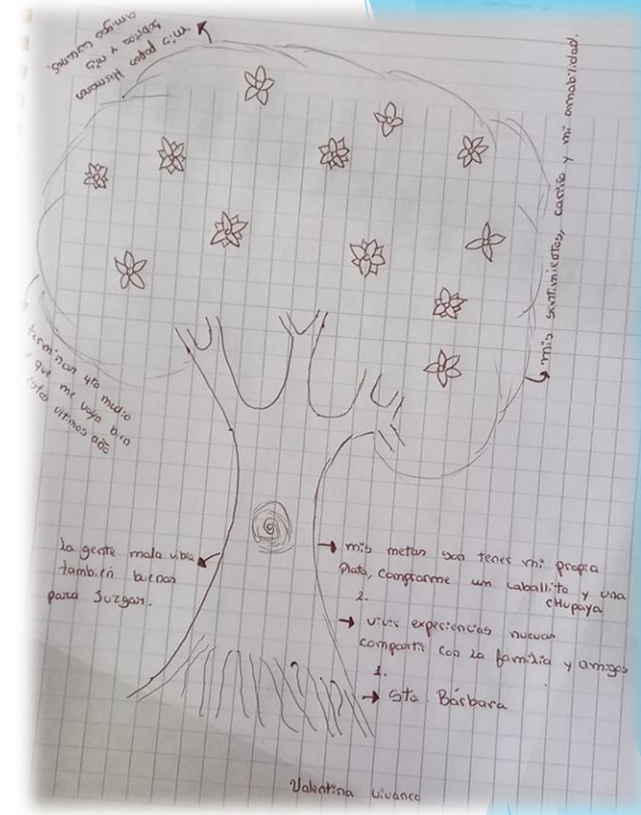 mis papas Hermanas
sobrios y mis
amigos cercanos
mis sentimientos, cariño y mi amabilidad.
terminar 4to medio
y que me vaya bien
estos ultimos año
la gente mala vibra
también buenos
para Juzgar.
mis metas son tener mi propia
plata, comprarme un caballito y una
chupaya
2.
vivir experiencias nuevas
compartir con la familia y amigos
1.
Sta. Bárbara
Valentina Vivanco